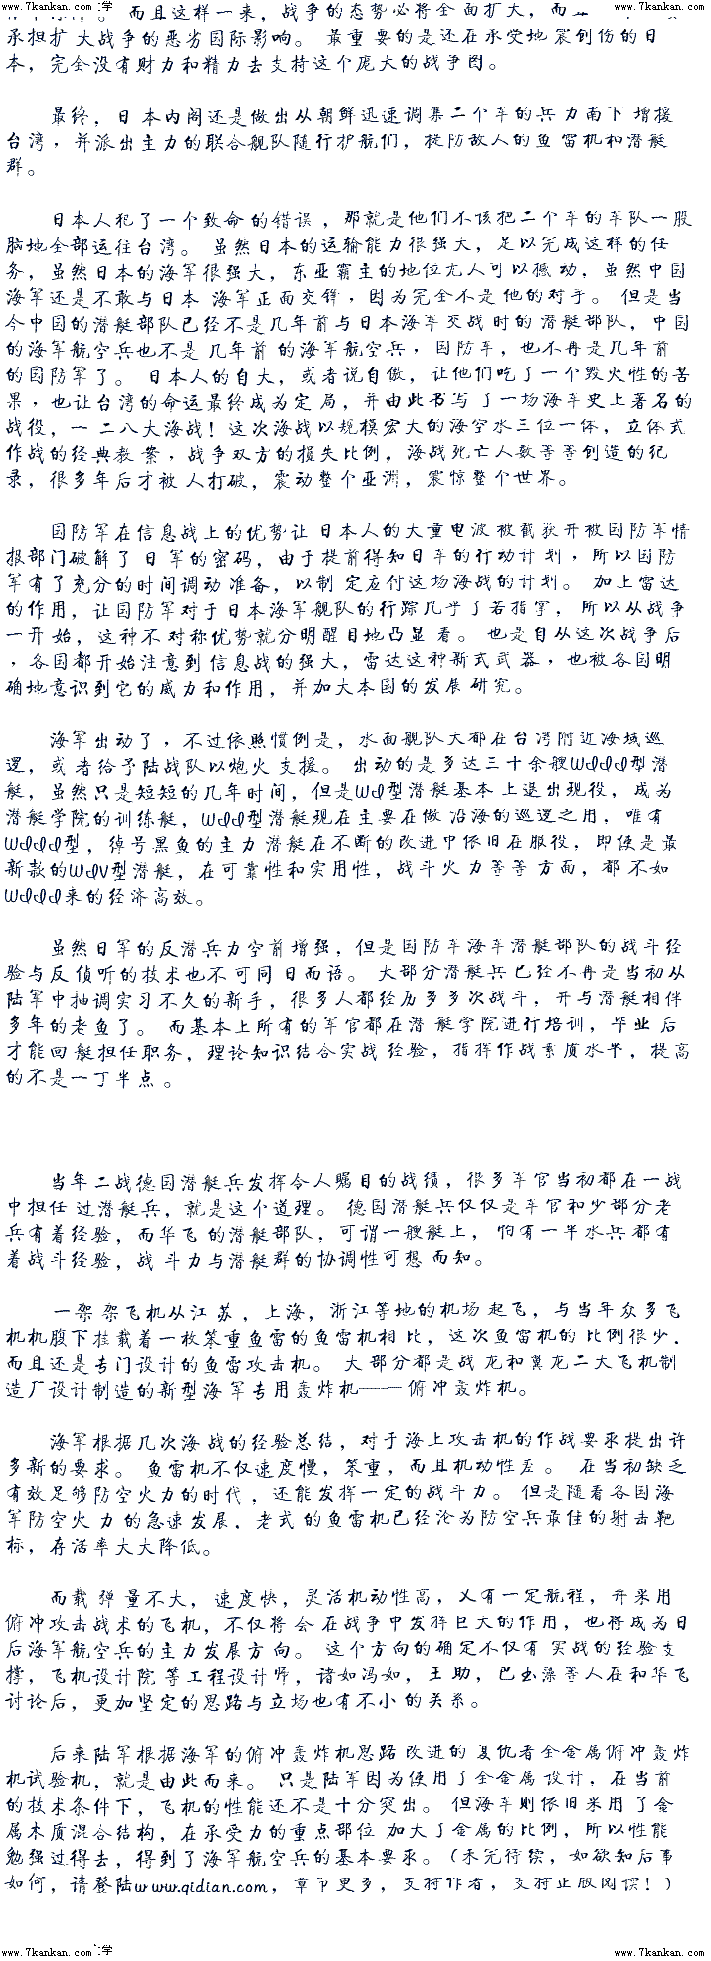 www.7kankan.com 文学 www.7kankan.com
而且这样一来，战争的态势必将全面扩大，而
承担扩大战争的恶劣国际影响。最重要的是还在承受地震创伤的日
本，完全没有财力和精力去支持这个庞大的战争图。
最终，日本内阁还是做出从朝鲜迅速调集二个军的兵力南下增援
台湾，并派出主力的联合舰队随行护航们，提防敌人的鱼雷机和潜艇
群。
日本人犯了一个致命的错误，那就是他们不该把二个军的军队一股
脑地全部运往台湾。虽然日本的运输能力很强大，足以完成这样的任
务，虽然日本的海军很强大，东亚霸主的地位无人可以撼动，虽然中国
海军还是不敢与日本海军正面交锋，因为完全不是他的对手。但是当
今中国的潜艇部队已经不是几年前与日本海军交战时的潜艇部队，中国
的海军航空兵也不是几年前的海军航空兵，国防军，也不再是几年前
的国防军了。日本人的自大，或者说自傲，让他们吃了一个毁灭性的苦
果，也让台湾的命运最终成为定局，并由此书写了一场海军史上著名的
战役，一二八大海战！这次海战以规模宏大的海空水三位一体，立体式
作战的经典教案，战争双方的损失比例，海战死亡人数等等创造的纪
录，很多年后才被人打破，震动整个亚洲，震惊整个世界。
国防军在信息战上的优势让日本人的大量电波被截获并被国防军情
报部门破解了日军的密码，由于提前得知日军的行动计划，所以国防
军有了充分的时间调动准备，以制定应付这场海战的计划。加上雷达
的作用，让国防军对于日本海军舰队的行踪几乎了若指掌，所以从战争
一开始，这种不对称优势就分明醒目地凸显着。也是自从这次战争后
，各国都开始注意到信息战的强大，雷达这种新式武器，也被各国明
确地意识到它的威力和作用，并加大本国的发展研究。
海军出动了，不过依照惯例是，水面舰队大都在台湾附近海域巡
逻，或者给予陆战队以炮火支援。出动的是多达三十余艘WIII型潜
艇，虽然只是短短的几年时间，但是WI型潜艇基本上退出现役，成为
潜艇学院的训练艇，WII型潜艇现在主要在做沿海的巡逻之用，唯有
WIII型，绰号黑鱼的主力潜艇在不断的改进中依旧在服役，即使是最
新款的WIV型潜艇，在可靠性和实用性，战斗火力等等方面，都不如
WIII来的经济高效。
虽然日军的反潜兵力空前增强，但是国防军海军潜艇部队的战斗经
验与反侦听的技术也不可同日而语。大部分潜艇兵已经不再是当初从
陆军中抽调实习不久的新手，很多人都经历多多次战斗，并与潜艇相伴
多年的老鱼了。而基本上所有的军官都在潜艇学院进行培训，毕业后
才能回艇担任职务，理论知识结合实战经验，指挥作战素质水平，提高
的不是一丁半点。
当年二战德国潜艇兵发挥令人瞩目的战绩，很多军官当初都在一战
中担任过潜艇兵，就是这个道理。德国潜艇兵仅仅是军官和少部分老
兵有着经验，而华飞的潜艇部队，可谓一艘艇上，怕有一半水兵都有
着战斗经验，战斗力与潜艇群的协调性可想而知。
一架架飞机从江苏，上海，浙江等地的机场起飞，与当年众多飞
机机腹下挂载着一枚笨重鱼雷的鱼雷机相比，这次鱼雷机的比例很少，
而且还是专门设计的鱼雷攻击机。大部分都是战龙和翼龙二大飞机制
造厂设计制造的新型海军专用轰炸机——俯冲轰炸机。
海军根据几次海战的经验总结，对于海上攻击机的作战要求提出许
多新的要求。鱼雷机不仅速度慢，笨重，而且机动性差。在当初缺乏
有效足够防空火力的时代，还能发挥一定的战斗力。但是随着各国海
军防空火力的急速发展，老式的鱼雷机已经沦为防空兵最佳的射击靶
标，存活率大大降低。
而载弹量不大，速度快，灵活机动性高，又有一定航程，并采用
俯冲攻击战术的飞机，不仅将会在战争中发挥巨大的作用，也将成为日
后海军航空兵的主力发展方向。这个方向的确定不仅有实战的经验支
撑，飞机设计院等工程设计师，诸如冯如，王助，巴玉藻等人在和华飞
讨论后，更加坚定的思路与立场也有不小的关系。
后来陆军根据海军的俯冲轰炸机思路改进的复仇者全金属俯冲轰炸
机试验机，就是由此而来。只是陆军因为使用了全金属设计，在当前
的技术条件下，飞机的性能还不是十分突出。但海军则依旧采用了金
属木质混合结构，在承受力的重点部位加大了金属的比例，所以性能
勉强过得去，得到了海军航空兵的基本要求。（未完待续，如欲知后事
如何，请登陆www.qidian.com，章节更多，支持作者，支持正版阅读！）
www.7kankan.com 文学 www.7kankan.com